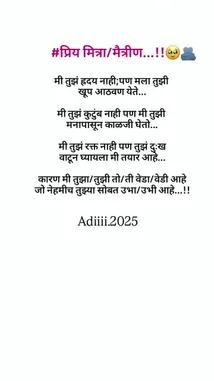 #प्रिय मित्रा/मैत्रीण...!!🥹🫂
मी तुझं ह्रदय नाही;पण मला तुझी
खूप आठवण येते...
मी तुझं कुटुंब नाही पण मी तुझी
मनापासून काळजी घेतो...
मी तुझं रक्त नाही पण तुझं दुःख
वाटून घ्यायला मी तयार आहे...
कारण मी तुझा/तुझी तो/ती वेडा/वेडी आहे
जो नेहमीच तुझ्या सोबत उभा/उभी आहे...!!
Adiiii.2025